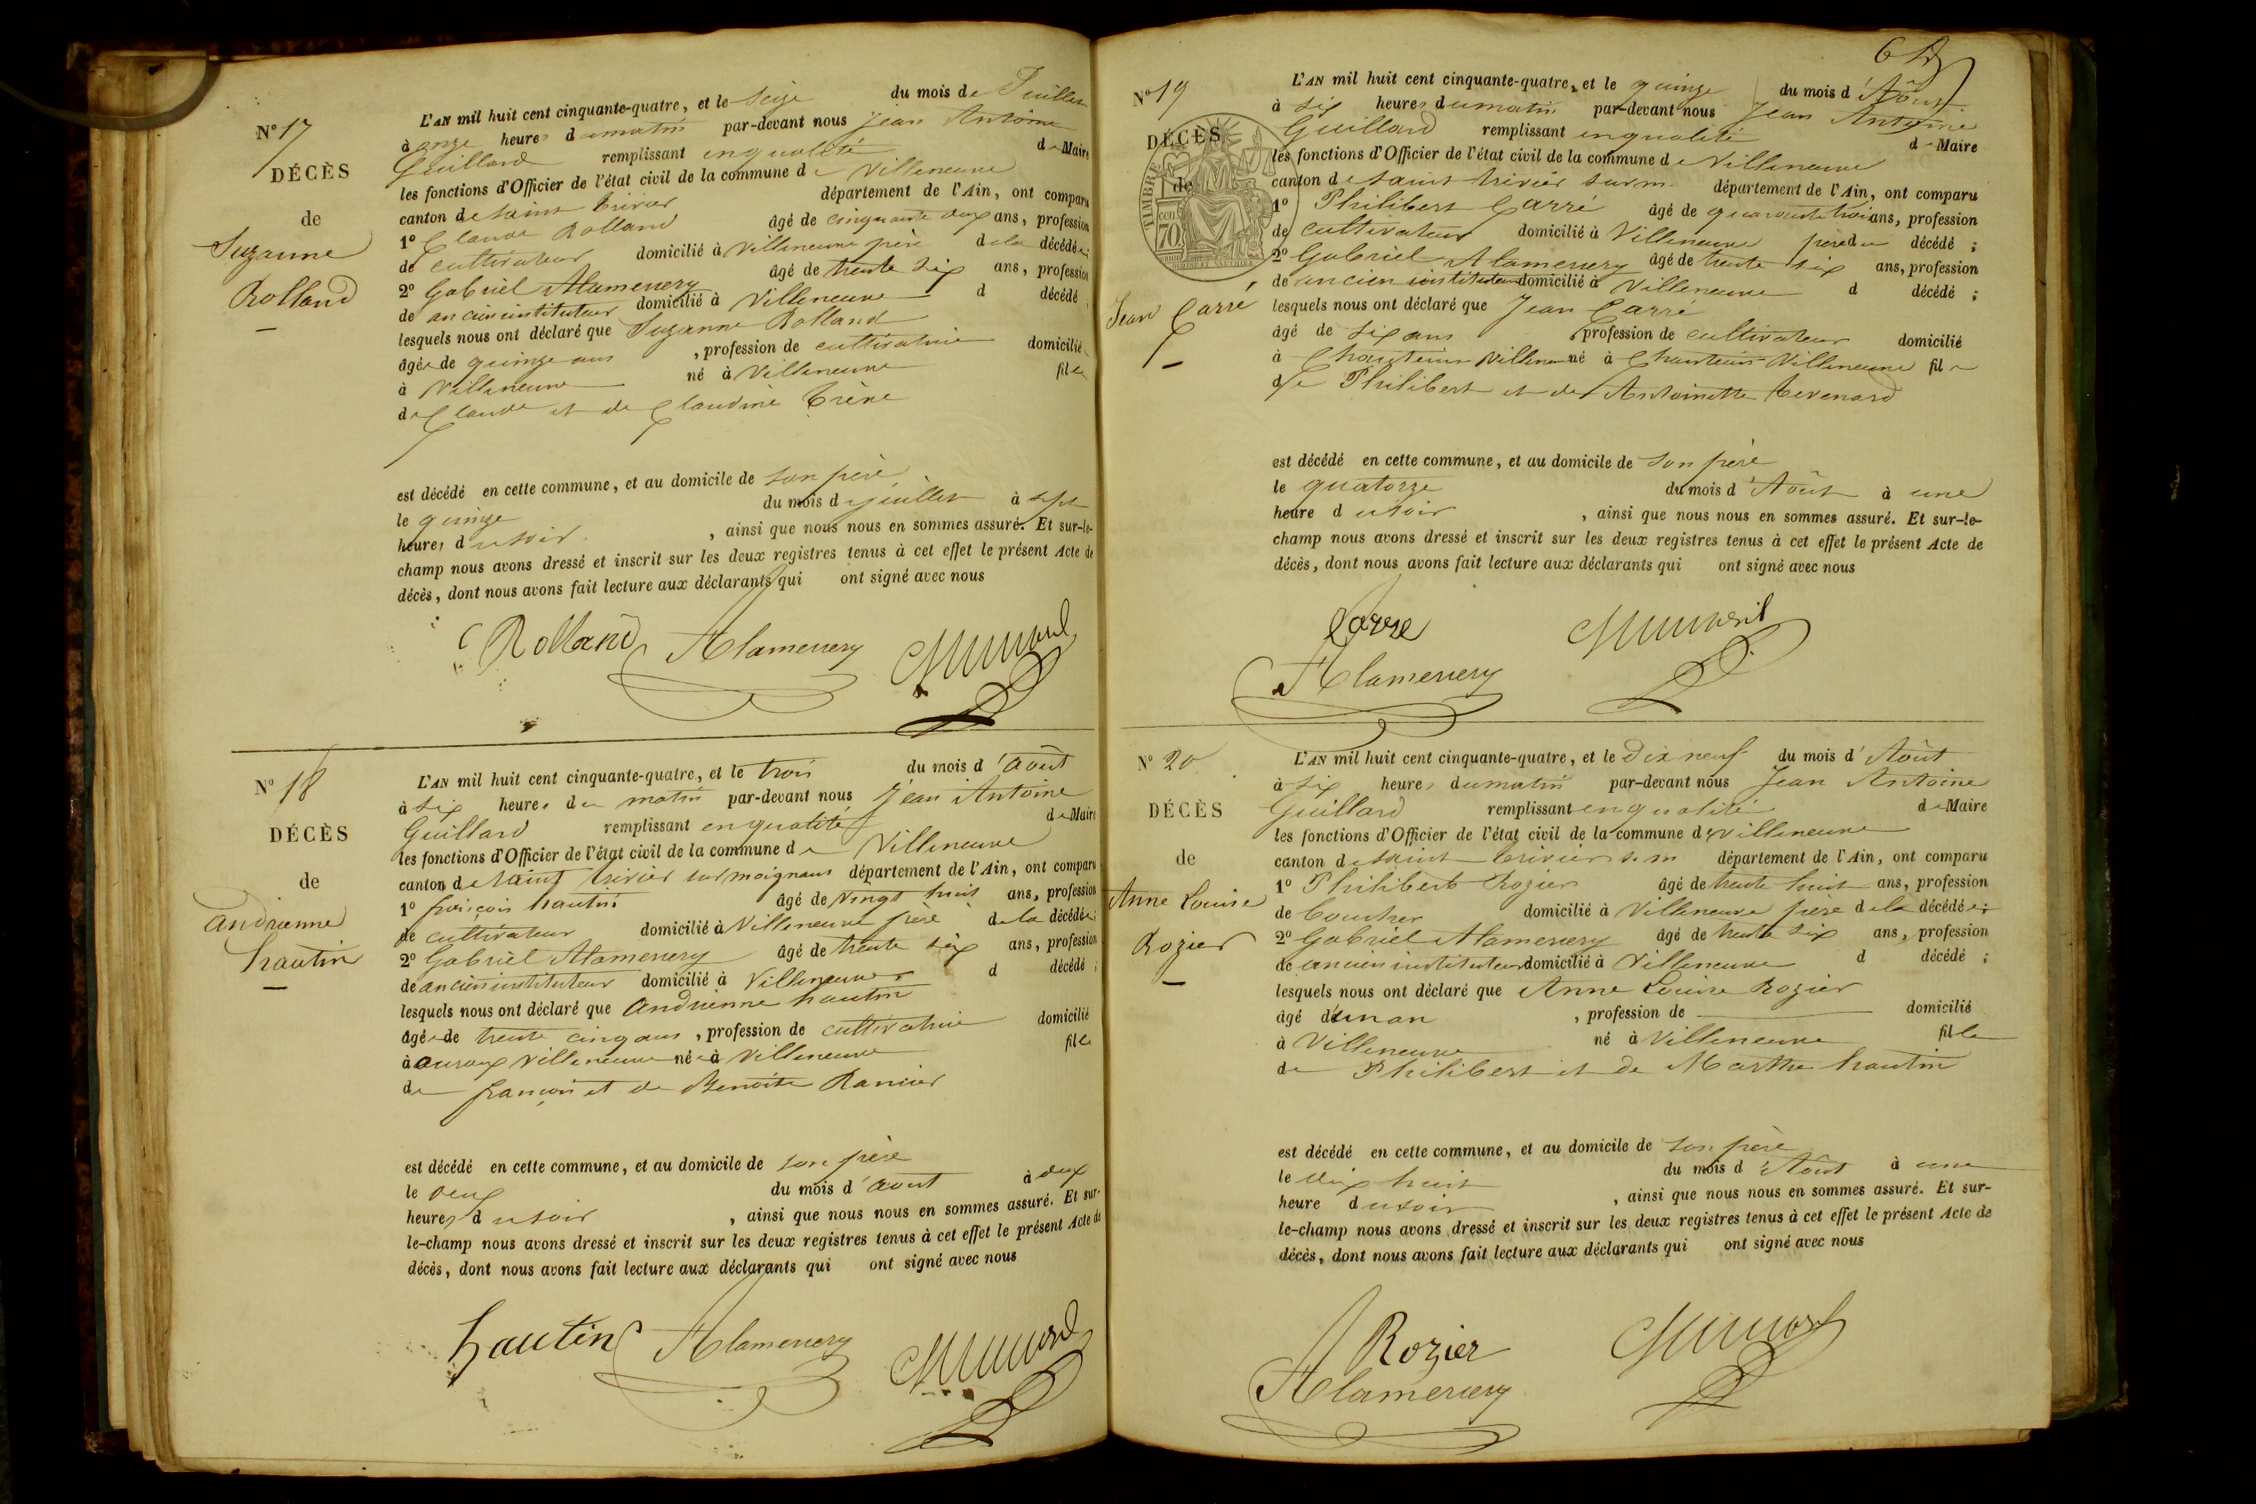 N° 17
DÉCÈS
de
Suzanne
Rolland
L'AN mil huit cent cinquante-quatre, et le Seize du mois de Juillet
à onze heures du matin par-devant nous Jean Antoine
Guillard remplissant en qualité de Maire
les fonctions d'Officier de l'état civil de la commune de Villeneuve
canton de Saint Trivier département de l'Ain, ont comparu
1° Claude Rolland âgé de cinquante deux ans, profession
de cultivateur domicilié à Villeneuve père de la décédée;
2° Gabriel Alamercery âgé de trente six ans, profession
de ancien instituteur domicilié à Villeneuve d décédé ;
lesquels nous ont déclaré que Suzanne Rolland
âgée de quinze ans , profession de cultivatrice domicilié
à Villeneuve né à Villeneuve fille
de Claude et de Claudine
est décédé en cette commune, et au domicile de son père
le quinze du mois de juillet à sept
heures du soir , ainsi que nous nous en sommes assuré. Et sur-le-
champ nous avons dressé et inscrit sur les deux registres tenus à cet effet le présent Acte de
décès, dont nous avons fait lecture aux déclarants qui ont signé avec nous
Rolland Alamercery
N° 18
DÉCÈS
de
Andrienne
hautin
L'AN mil huit cent cinquante-quatre, et le trois du mois d'août
à six heures du matin par-devant nous Jean Antoine
Guillard remplissant en qualité de Maire
les fonctions d'Officier de l'état civil de la commune de Villeneuve
canton de Saint Trivier sur moignans département de l'Ain, ont comparu
1° françois hautin âgé de vingt huit ans, profession
de cultivateur domicilié à Villeneuve père de la décédée;
2° Gabriel Alamercery âgé de trente six ans, profession
de ancien instituteur domicilié à Villeneuve d décédé ;
lesquels nous ont déclaré que Andrienne hautin
âgée de trente cinq ans , profession de cultivatrice domicilié
à Villeneuve née à Villeneuve fille
de françois et de Benoite
est décédé en cette commune, et au domicile de son père
le deux du mois d'aout à deux
heures du soir , ainsi que nous nous en sommes assuré. Et sur-
le-champ nous avons dressé et inscrit sur les deux registres tenus à cet effet le présent Acte de
décès, dont nous avons fait lecture aux déclarants qui ont signé avec nous
hautin Alamercery
N° 19
DÉCÈS
de
TIMBRE
70 cen
Jean Carré
L'AN mil huit cent cinquante-quatre, et le quinze du mois d'Août
à six heures du matin par-devant nous Jean Antoine
Guillard remplissant en qualité de Maire
les fonctions d'Officier de l'état civil de la commune de Villeneuve
canton de Saint Trivier sur m. département de l'Ain, ont comparu
1° Philibert Carré âgé de quarante trois ans, profession
de cultivateur domicilié à Villeneuve père du décédé ;
2° Gabriel Alamercery âgé de trente six ans, profession
de ancien instituteur domicilié à Villeneuve d décédé ;
lesquels nous ont déclaré que Jean Carré
âgé de six ans , profession de cultivateur domicilié
à Villeneuve né à Villeneuve fil
de Philibert et de Antoinette Tevenard
est décédé en cette commune, et au domicile de son père
le quatorze du mois d'Août à une
heure du soir , ainsi que nous nous en sommes assuré. Et sur-le-
champ nous avons dressé et inscrit sur les deux registres tenus à cet effet le présent Acte de
décès, dont nous avons fait lecture aux déclarants qui ont signé avec nous
Carre
Alamercery
N° 20
DÉCÈS
de
Anne Louise
Rozier
L'AN mil huit cent cinquante-quatre, et le Dix neuf du mois d'Août
à six heures du matin par-devant nous Jean Antoine
Guillard remplissant en qualité de Maire
les fonctions d'Officier de l'état civil de la commune de Villeneuve
canton de Saint Trivier s. m département de l'Ain, ont comparu
1° Philibert Rozier âgé de trente huit ans, profession
de domicilié à Villeneuve père de la décédée;
2° Gabriel Alamercery âgé de trente six ans, profession
de ancien instituteur domicilié à Villeneuve d décédé ;
lesquels nous ont déclaré que Anne Louise Rozier
âgé d'un an , profession de domicilié
à Villeneuve né à Villeneuve fille
de Philibert et de Marthe hautin
est décédé en cette commune, et au domicile de son père
le dix huit du mois d'Août à une
heure du soir , ainsi que nous nous en sommes assuré. Et sur-
le-champ nous avons dressé et inscrit sur les deux registres tenus à cet effet le présent Acte de
décès, dont nous avons fait lecture aux déclarants qui ont signé avec nous
Rozier
Alamercery